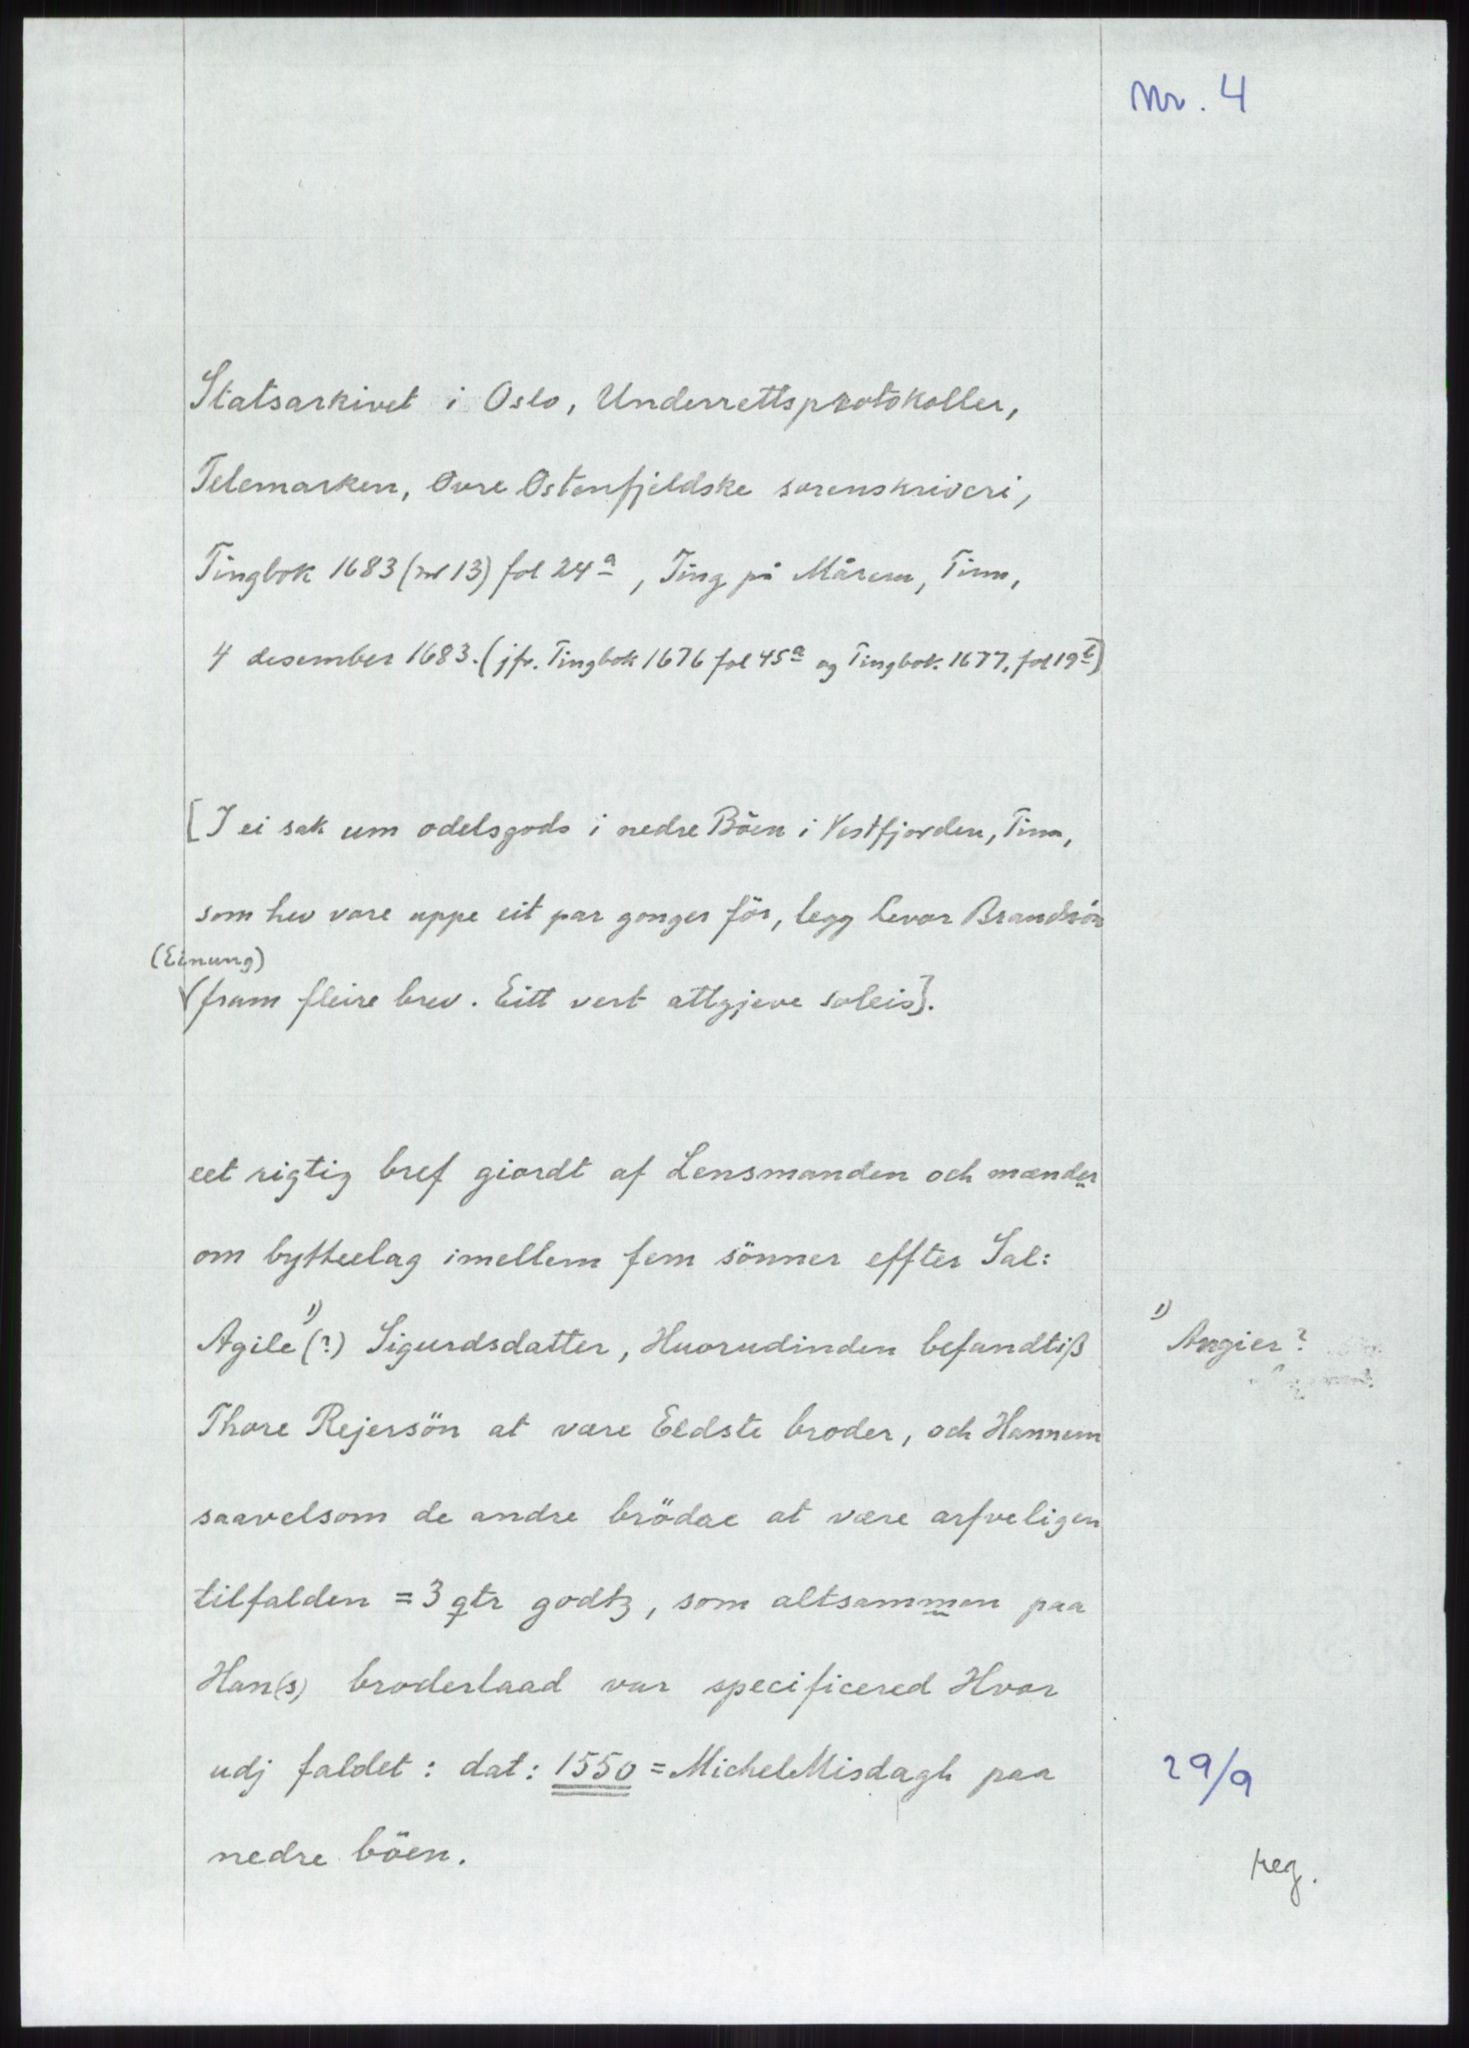 Nr. 4
Statsarkivet i Oslo, Underrettsprotokoller,
Telemarken, Övre Östenfjeldske sorenskriveri,
Tingbok 1683 (nr 13) fol 24a, Ting på Mårem, Tinn,
4 desember 1683. (jfr. Tingbok 1676 fol 45a og Tingbok 1677, fol 19b)
[I ei sak um odelsgods i nedre Böen i Vestfjorden, Tinn,
som hev vore uppe eit par gonger för, legg Levor Brandsön
(Einung)
fram fleire brev. Eitt vert attgjeve soleis].
eet rigtig bref giordt af Lensmanden och mænder
om bytteelag imellem fem sönner effter Sal:
Agile 1) (?) Sigurdsdatter, Huorudinden befandtiß
1) Angier?
Thore Rejersön at være Eldste broder, och Hannem
saavelsom de andre brödre at være arfveligen
tilfalden = 3 qtr godtz, som altsammen paa
Han(s) broderlaad var specificered Hvor
udj faldet : dat: 1550 = Michel Misdagh paa
29/9
nedre böen.
reg.